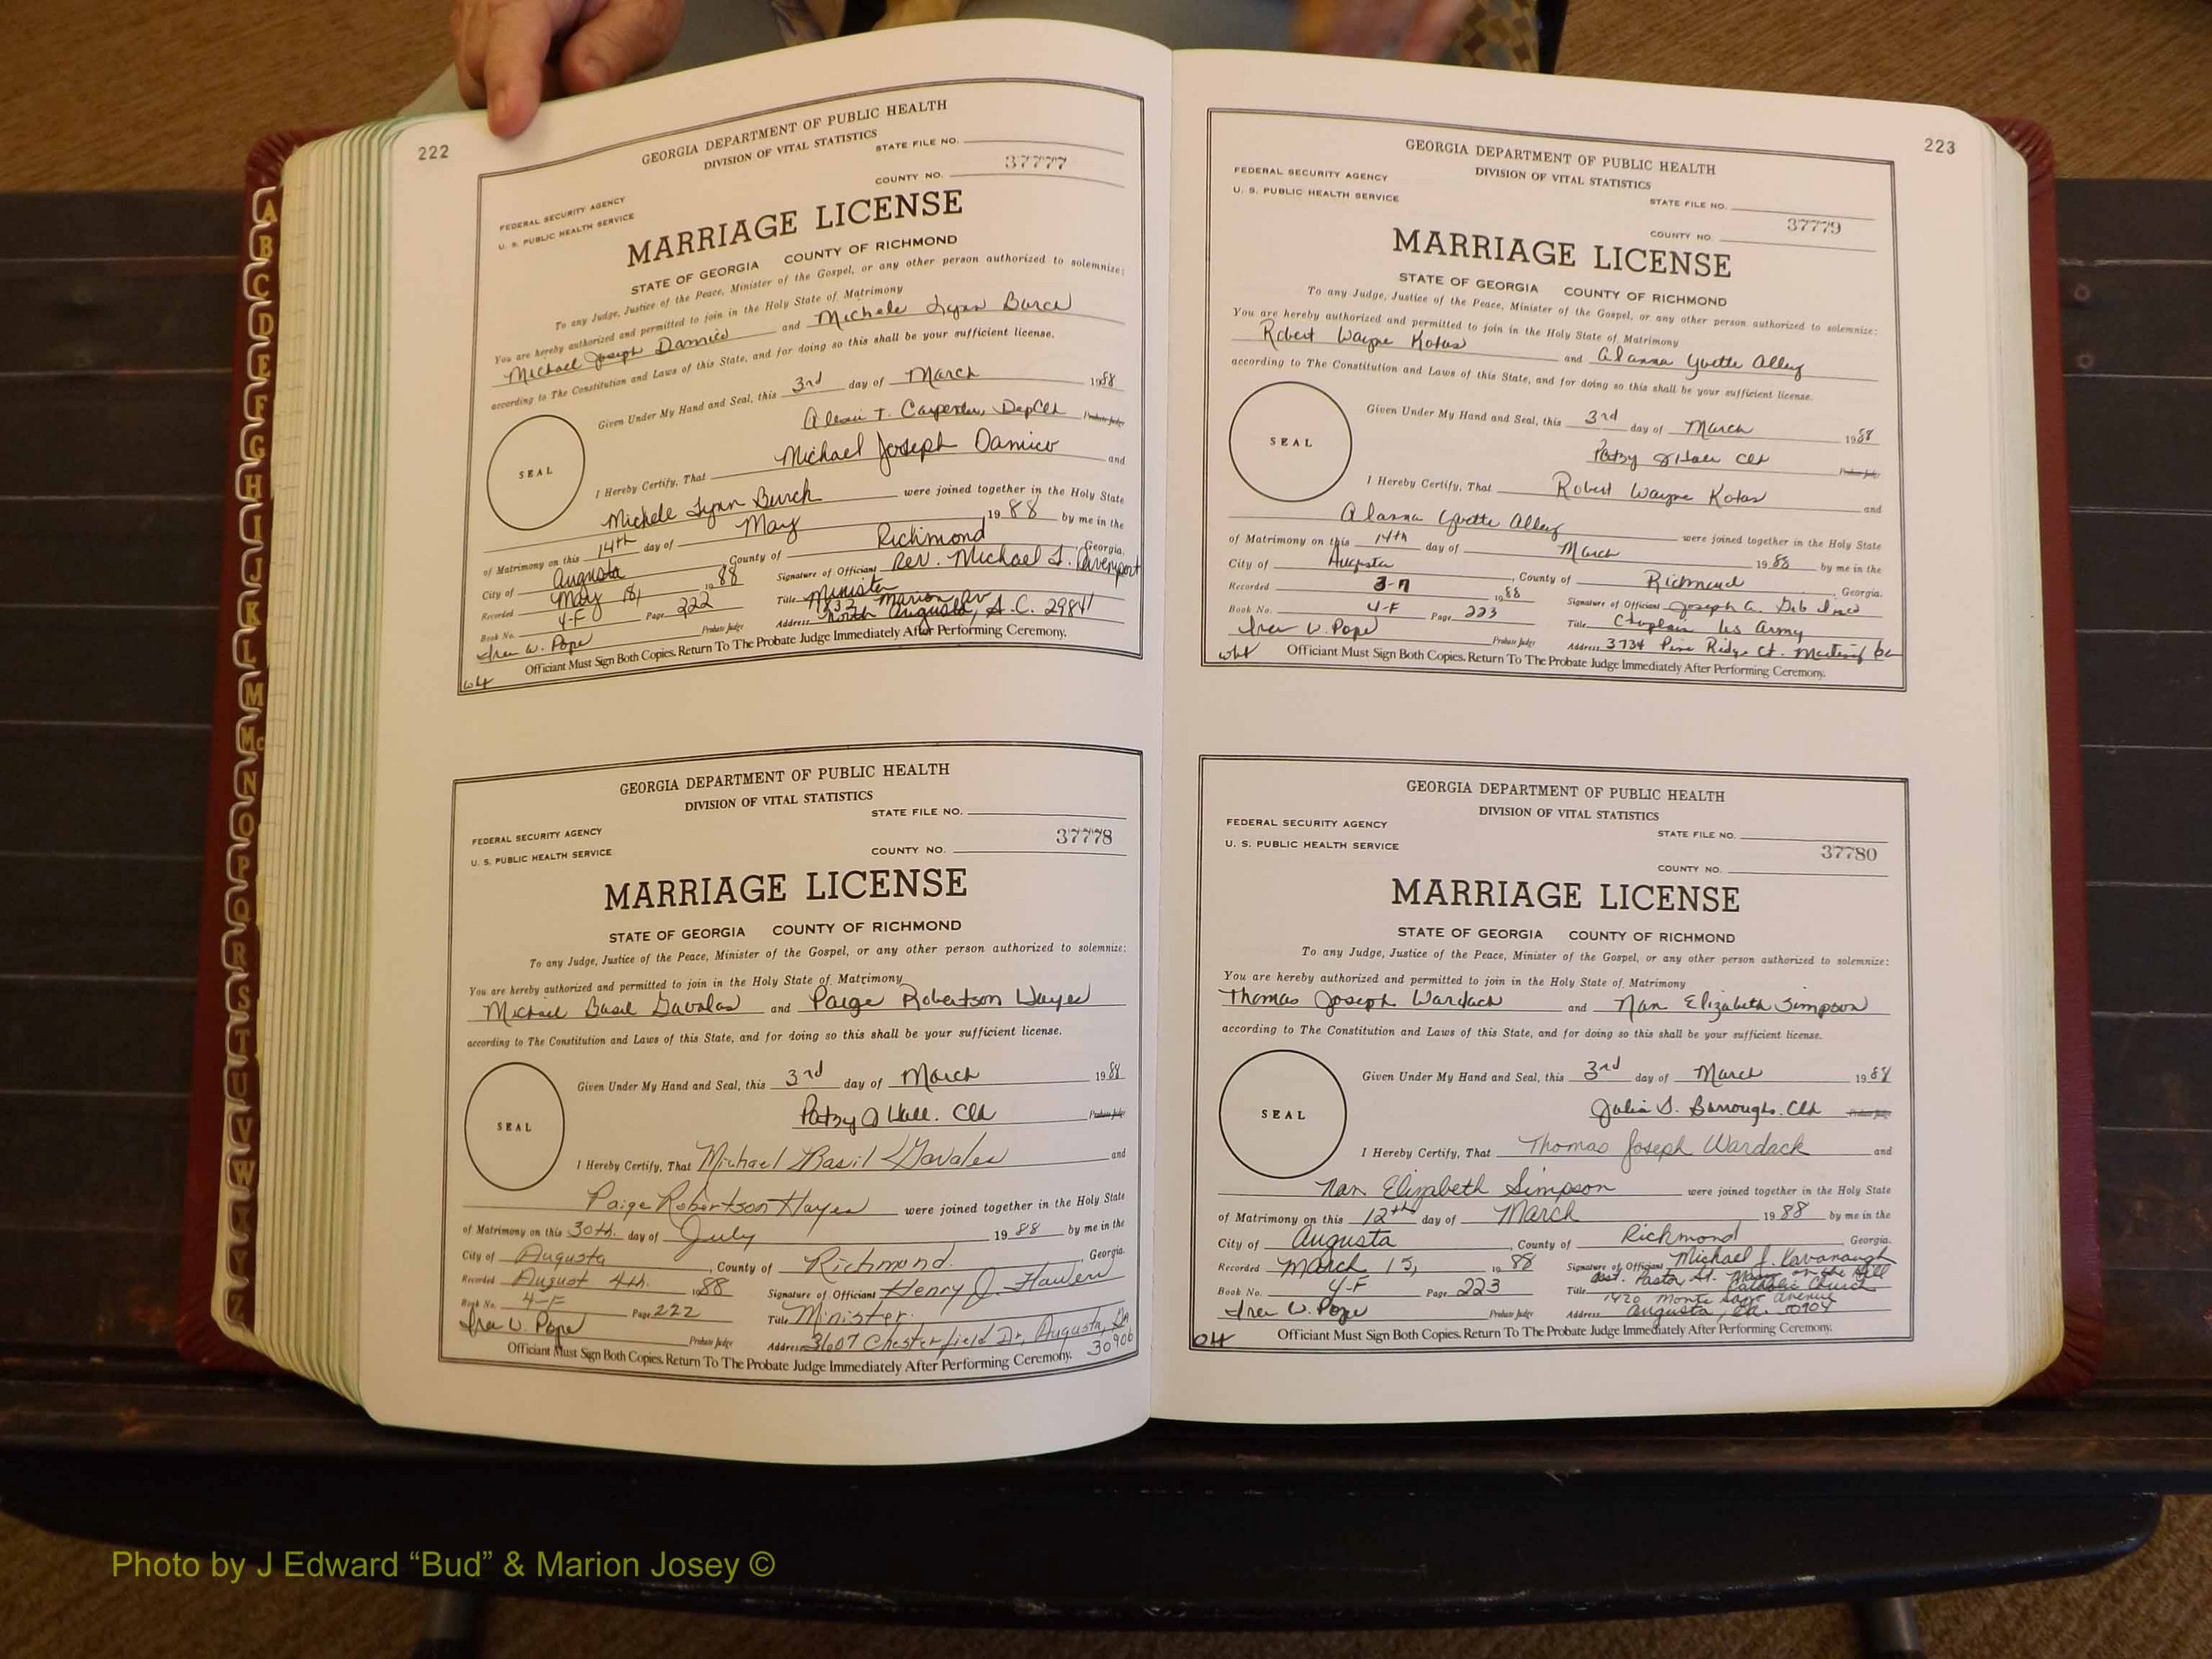 222
GEORGIA DEPARTMENT OF PUBLIC HEALTH
DIVISION OF VITAL STATISTICS
STATE FILE NO.
37777
COUNTY NO.
FEDERAL SECURITY AGENCY
U. S. PUBLIC HEALTH SERVICE
MARRIAGE LICENSE
STATE OF GEORGIA COUNTY OF RICHMOND
To any Judge, Justice of the Peace, Minister of the Gospel, or any other person authorized to solemnize:
You are hereby authorized and permitted to join in the Holy State of Matrimony
Michael Joseph Damico and Michele Lynn Burch
according to The Constitution and Laws of this State, and for doing so this shall be your sufficient license.
Given Under My Hand and Seal, this 3rd day of March 1988
T. Carpenter, Dep Clk Probate Judge
SEAL
I Hereby Certify, That Michael Joseph Damico and
Michele Lynn Burch were joined together in the Holy State
of Matrimony on this 14th day of May 1988 by me in the
City of Augusta County of Richmond Georgia.
Recorded May 18, 1988 Signature of Officiant Rev. Michael Davenport
Book No. 4-F Page 222 Title Minister
Address Marion Av North Augusta, S.C. 29841
Probate Judge
Officiant Must Sign Both Copies. Return To The Probate Judge Immediately After Performing Ceremony.
GEORGIA DEPARTMENT OF PUBLIC HEALTH
DIVISION OF VITAL STATISTICS
STATE FILE NO.
37778
FEDERAL SECURITY AGENCY
U. S. PUBLIC HEALTH SERVICE
COUNTY NO.
MARRIAGE LICENSE
STATE OF GEORGIA COUNTY OF RICHMOND
To any Judge, Justice of the Peace, Minister of the Gospel, or any other person authorized to solemnize:
You are hereby authorized and permitted to join in the Holy State of Matrimony
Michael Basil Gavalas and Paige Robertson Hayes
according to The Constitution and Laws of this State, and for doing so this shall be your sufficient license.
Given Under My Hand and Seal, this 3rd day of March 1988
Patsy O Hall. Clk Probate Judge
SEAL
I Hereby Certify, That Michael Basil Gavalas and
Paige Robertson Hayes were joined together in the Holy State
of Matrimony on this 30th. day of July 1988 by me in the
City of Augusta, County of Richmond. Georgia.
Recorded August 4th. 1988 Signature of Officiant Henry J.
Book No. 4-F Page 222 Title Minister.
Probate Judge Address 3607 Chesterfield Dr, Augusta, GA 30906
Officiant Must Sign Both Copies. Return To The Probate Judge Immediately After Performing Ceremony.
223
GEORGIA DEPARTMENT OF PUBLIC HEALTH
DIVISION OF VITAL STATISTICS
FEDERAL SECURITY AGENCY
U. S. PUBLIC HEALTH SERVICE
STATE FILE NO.
37779
COUNTY NO.
MARRIAGE LICENSE
STATE OF GEORGIA COUNTY OF RICHMOND
To any Judge, Justice of the Peace, Minister of the Gospel, or any other person authorized to solemnize:
You are hereby authorized and permitted to join in the Holy State of Matrimony
Robert Wayne Kotas and Alanna Yvette Alley
according to The Constitution and Laws of this State, and for doing so this shall be your sufficient license.
Given Under My Hand and Seal, this 3rd day of March 1988
Patsy O Hall Clk Probate Judge
SEAL
I Hereby Certify, That Robert Wayne Kotas and
Alanna Yvette Alley were joined together in the Holy State
of Matrimony on this 14th day of March 1988 by me in the
City of Augusta, County of Richmond Georgia.
Recorded 1988 Signature of Officiant Joseph
Book No. 4-F Page 223 Title Chaplain US Army
Probate Judge Address 3734 Pine Ridge Ct.
Officiant Must Sign Both Copies. Return To The Probate Judge Immediately After Performing Ceremony.
GEORGIA DEPARTMENT OF PUBLIC HEALTH
DIVISION OF VITAL STATISTICS
FEDERAL SECURITY AGENCY
U. S. PUBLIC HEALTH SERVICE
STATE FILE NO.
37780
COUNTY NO.
MARRIAGE LICENSE
STATE OF GEORGIA COUNTY OF RICHMOND
To any Judge, Justice of the Peace, Minister of the Gospel, or any other person authorized to solemnize:
You are hereby authorized and permitted to join in the Holy State of Matrimony
Thomas Joseph Wardack and Nan Elizabeth Simpson
according to The Constitution and Laws of this State, and for doing so this shall be your sufficient license.
Given Under My Hand and Seal, this 3rd day of March 1988
Julia S. Burroughs. Clk Probate Judge
SEAL
I Hereby Certify, That Thomas Joseph Wardack and
Nan Elizabeth Simpson were joined together in the Holy State
of Matrimony on this 12th day of March 1988 by me in the
City of Augusta, County of Richmond Georgia.
Recorded March 15, 1988 Signature of Officiant Michael J. Kavanaugh
Book No. 4-F Page 223 Title Asst. Pastor St. Mary on the Hill Catholic Church
Probate Judge Address 1420 Monte Sano Avenue Augusta, Ga. 30904
Officiant Must Sign Both Copies. Return To The Probate Judge Immediately After Performing Ceremony.
A
B
C
D
E
F
G
H
I
J
K
L
M
Mc
N
O
P
Q
R
S
T
U
V
W
X
Y
Z
Photo by J Edward “Bud” & Marion Josey ©